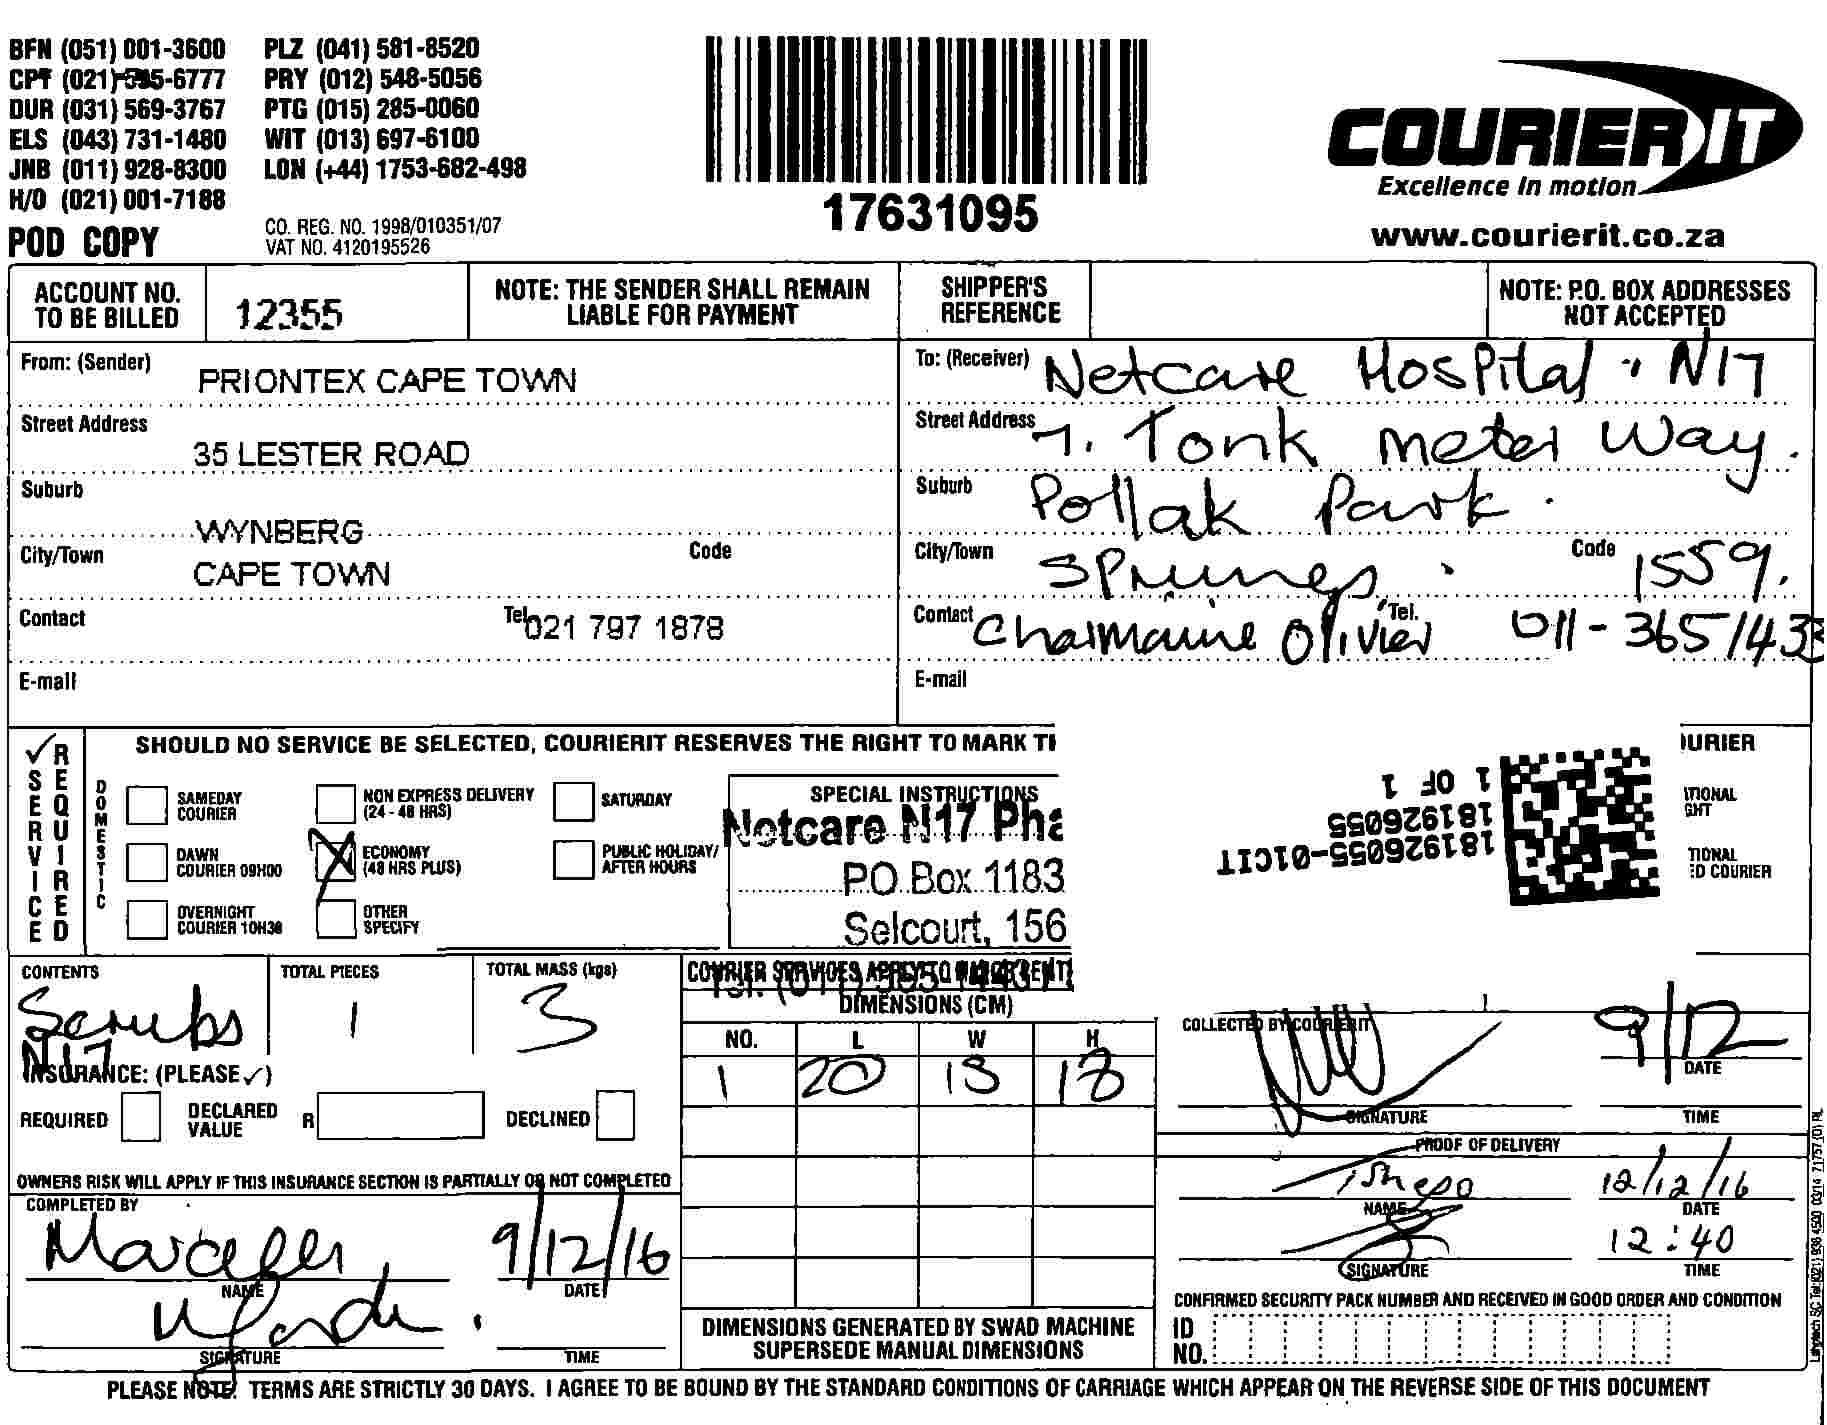 BFN (051) 001-3600 PLZ (041) 581-8520
CPT (021) 6777 PRY (012) 548-5056
DUR (031) 569-3767 PTG (015) 285-0060
ELS (043) 731-1480 WIT (013) 697-6100
JNB (011) 928-8300 LON (+44) 1753-682-498
H/O (021) 001-7188
CO. REG. NO. 1998/010351/07
VAT NO. 4120195526
POD COPY
17631095
COURIER IT
Excellence in motion
www.courierit.co.za
ACCOUNT NO.
TO BE BILLED
12355
NOTE: THE SENDER SHALL REMAIN
LIABLE FOR PAYMENT
SHIPPER'S
REFERENCE
NOTE: P.O. BOX ADDRESSES
NOT ACCEPTED
From: (Sender) PRIONTEX CAPE TOWN
Street Address 35 LESTER ROAD
Suburb WYNBERG
City/Town CAPE TOWN Code
Contact Tel. 021 797 1878
E-mail
To: (Receiver) Netcare Hospital . N17
Street Address 7. Tonk meter Way.
Suburb Pollak Park.
City/Town Springs. Code 1559.
Contact Charmaine Olivier Tel. 011-3651433
E-mail
✓ SERVICE REQUIRED
SHOULD NO SERVICE BE SELECTED, COURIERIT RESERVES THE RIGHT TO MARK TH
OURIER
DOMESTIC
SAMEDAY
COURIER
NON EXPRESS DELIVERY
(24 - 48 HRS)
SATURDAY
DAWN
COURIER 09H00
ECONOMY
(48 HRS PLUS)
PUBLIC HOLIDAY/
AFTER HOURS
OVERNIGHT
COURIER 10H30
OTHER
SPECIFY
SPECIAL INSTRUCTIONS
Netcare N17 Pha
PO Box 1183
Selcourt, 156
1 OF 1
181926055
181926055-01CIT
ATIONAL
GHT
TIONAL
ED COURIER
CONTENTS
Scrubs
N17
TOTAL PIECES
1
TOTAL MASS (kgs)
3
COURIER SERVICES APPLY TO
Tel: (011)
DIMENSIONS (CM)
NO. L W H
1 20 18 18
INSURANCE: (PLEASE ✓)
REQUIRED DECLARED
VALUE R DECLINED
OWNERS RISK WILL APPLY IF THIS INSURANCE SECTION IS PARTIALLY OR NOT COMPLETED
COMPLETED BY
9/12/16
NAME DATE
SIGNATURE TIME
DIMENSIONS GENERATED BY SWAD MACHINE
SUPERSEDE MANUAL DIMENSIONS
COLLECTED BY COURIERIT
9/12
DATE
SIGNATURE TIME
PROOF OF DELIVERY
Tshepo 12/12/16
NAME DATE
12:40
SIGNATURE TIME
CONFIRMED SECURITY PACK NUMBER AND RECEIVED IN GOOD ORDER AND CONDITION
ID
NO.
PLEASE NOTE: TERMS ARE STRICTLY 30 DAYS. I AGREE TO BE BOUND BY THE STANDARD CONDITIONS OF CARRIAGE WHICH APPEAR ON THE REVERSE SIDE OF THIS DOCUMENT